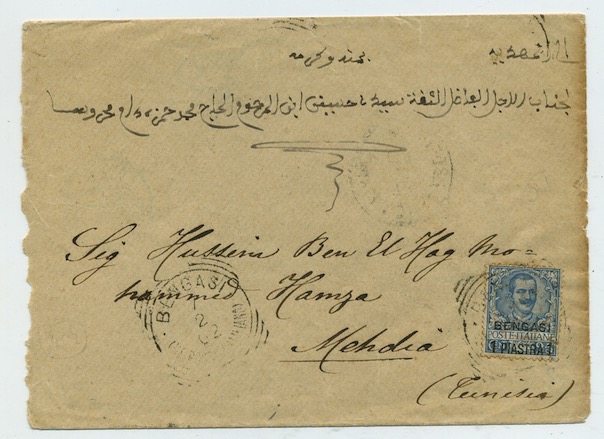 الى المهدية
بمنه وكرمه
جناب الاجل الفاضل الثقة سيد حسين ابن المرحوم الحاج محمد حمزه دام محروسا
Sig Hussein Ben El Hag Mo=
hammed Hamza
Mehdia
(Tunisia)
BENGASI
BENGASI
POSTE·ITALIANE
1 PIASTRA 1